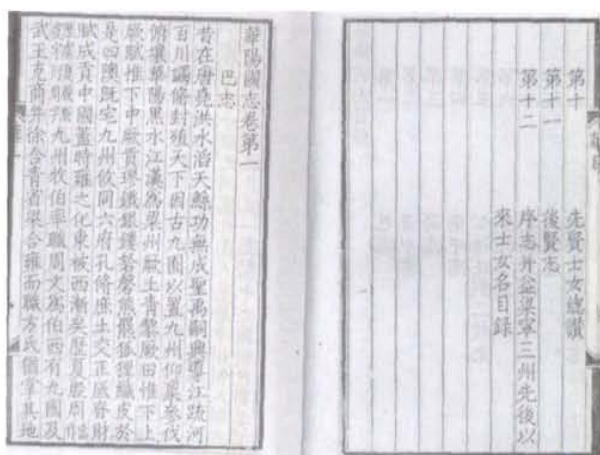 第十 先賢士女總讚
第十一 後賢志
第十二 序志并益梁寧三州先後以
來士女名目錄
華陽國志卷第一
巴志
昔在唐堯洪水滔天鯀功無成聖禹嗣興導江疏河
百川蠲脩封殖天下因古九囿以置九州仰稟參伐
俯壤華陽黑水江漢爲梁州厥土青黎厥田惟下上
厥賦惟下中厥貢璆鐵銀鏤砮磬熊羆狐狸織皮於
是四隩既宅九州攸同六府孔脩庶土交正厎昚財
賦成貢中國蓋時雍之化東被西漸矣歷夏殷周
九州牧伯率職周文爲伯西有九國及
武王克商并徐合青省梁合雍而職方氏猶掌其地